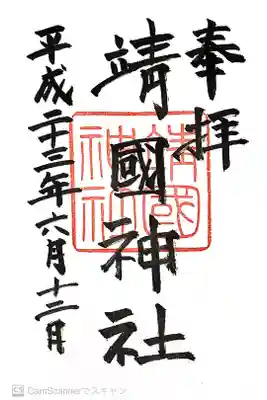 奉拝
靖國神社
靖國神社
平成二十三年六月十二日
CamScannerでスキャン